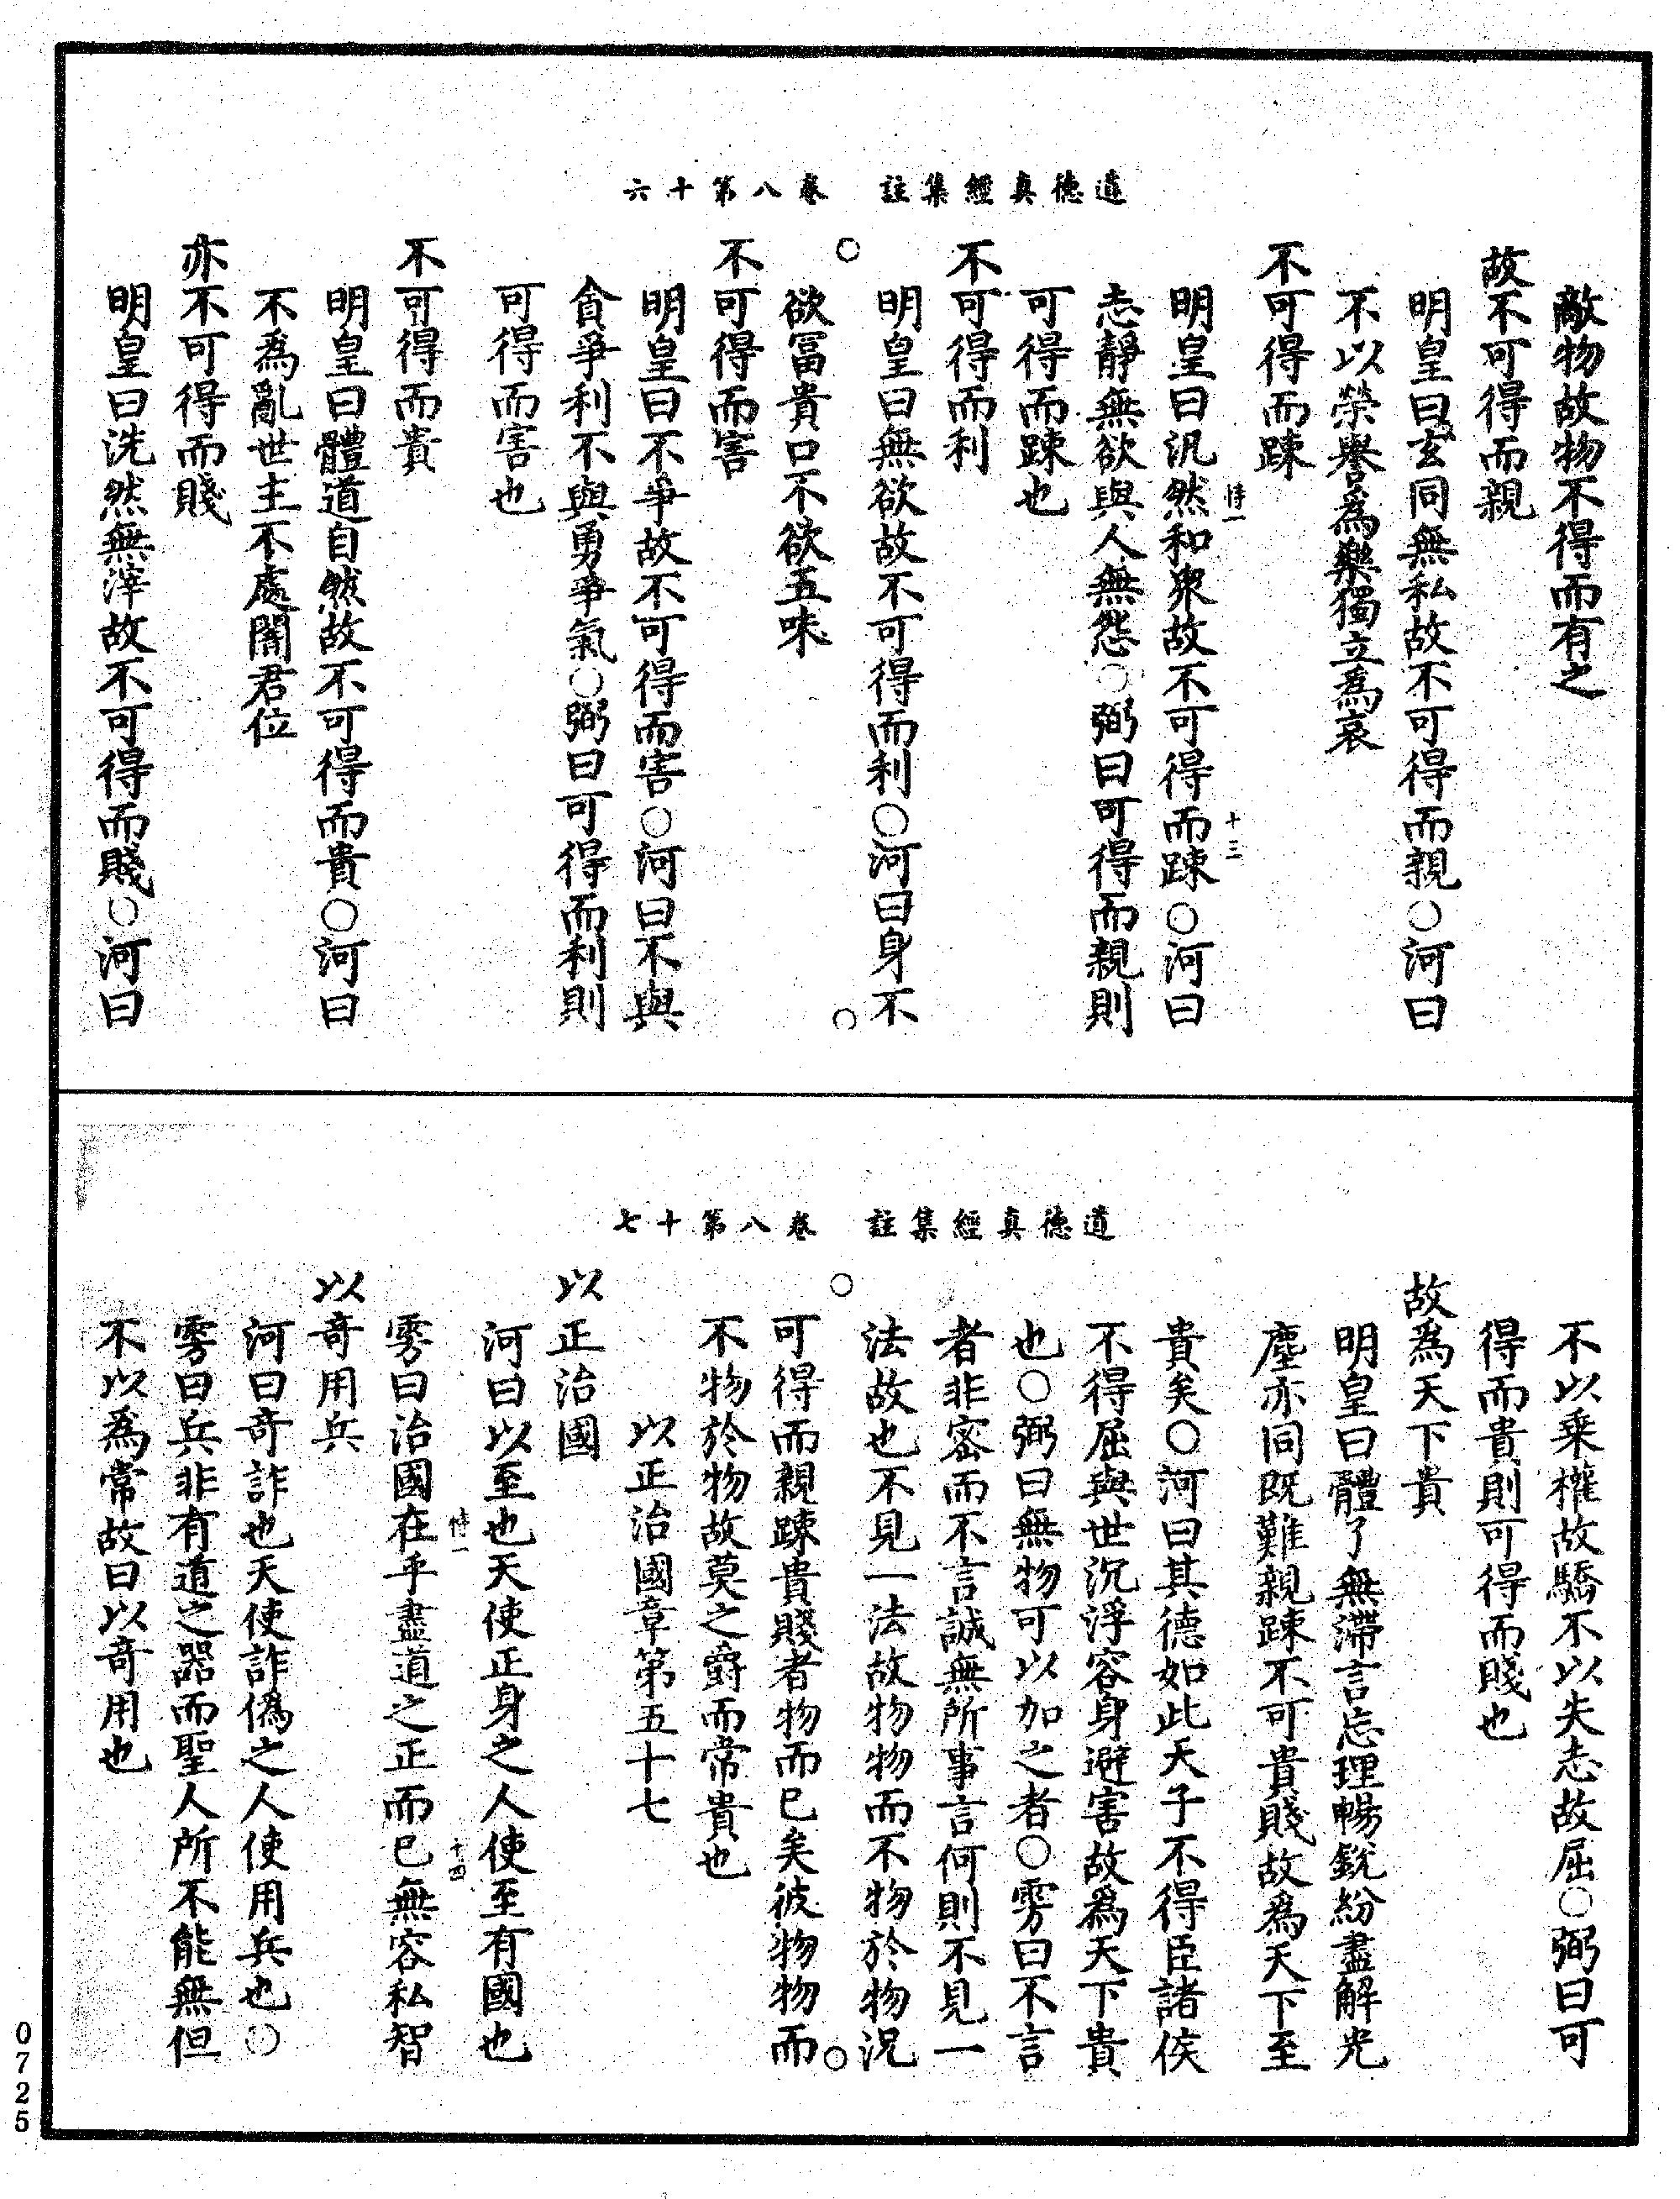 道德真經集註　卷八第十六
敵物故物不得而有之
故不可得而親
明皇曰玄同無私故不可得而親○河曰
不以榮譽為樂獨立為哀
不可得而踈
明皇曰汎然和衆故不可得而踈○河曰
志靜無欲與人無怨○弼曰可得而親則
可得而踈也
不可得而利
明皇曰無欲故不可得而利○河曰身不
欲冨貴口不欲五味
不可得而害
明皇曰不爭故不可得而害○河曰不與
貪爭利不與勇爭氣○弼曰可得而利則
可得而害也
不可得而貴
明皇曰體道自然故不可得而貴○河曰
不為亂世主不處闇君位
亦不可得而賤
明皇曰洗然無滓故不可得而賤○河曰
道德真經集註　卷八第十七
不以乘權故驕不以失志故屈○弼曰可
得而貴則可得而賤也
故為天下貴
明皇曰體了無滯言忘理暢銳紛盡解光
塵亦同既難親踈不可貴賤故為天下至
貴矣○河曰其德如此天子不得臣諸侯
不得屈與世沉浮容身避害故為天下貴
也○弼曰無物可以加之者○雱曰不言
者非密而不言誠無所事言何則不見一
法故也不見一法故物物而不物於物況
可得而親踈貴賤者物而已矣彼物物而
不物於物故莫之爵而常貴也
以正治國章第五十七
以正治國
河曰以至也天使正身之人使至有國也
雱曰治國在乎盡道之正而已無容私智
以奇用兵
河曰奇詐也天使詐偽之人使用兵也○
雱曰兵非有道之器而聖人所不能無但
不以為常故曰以奇用也
十三
十四
0725